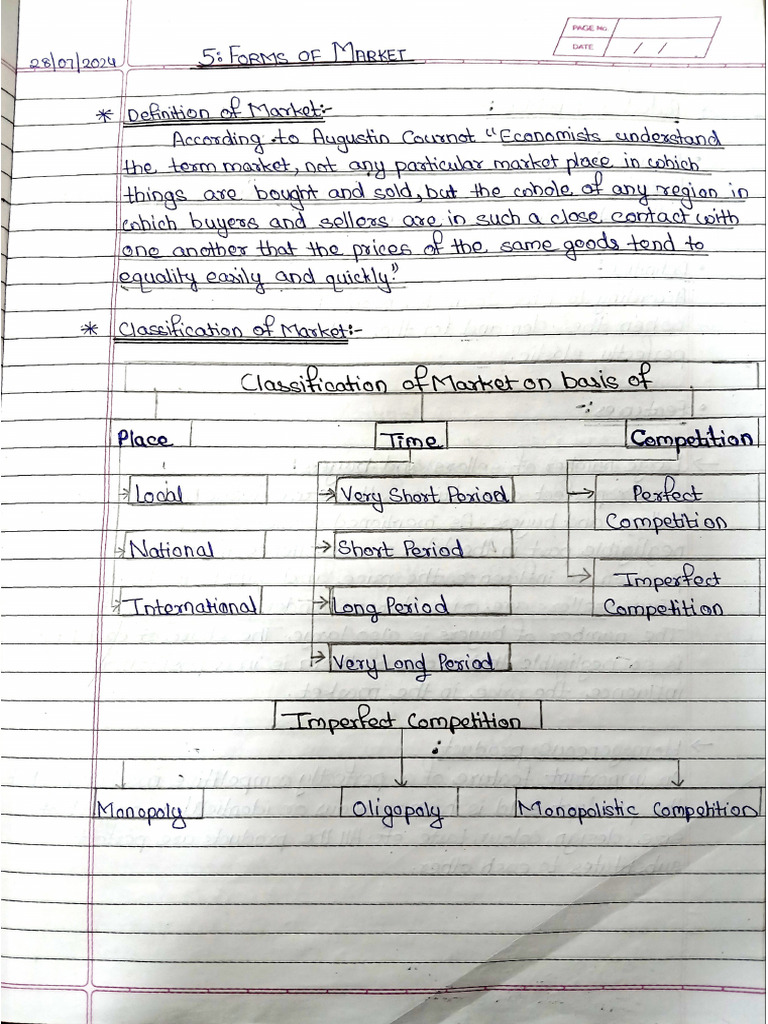 PAGE No
DATE / /
28/07/2024
5: FORMS OF MARKET
* Definition of Market:-
According to Augustin Cournot "Economists understand
the term market, not any particular market place in which
things are bought and sold, but the whole of any region in
which buyers and sellers are in such a close contact with
one another that the prices of the same goods tend to
equality easily and quickly."
* Classification of Market:-
Classification of Market on basis of
Place Time Competition
Local Very Short Period Perfect
Competition
National Short Period
Imperfect
International Long Period Competition
Very Long Period
Imperfect Competition
Monopoly Oligopoly Monopolistic Competition